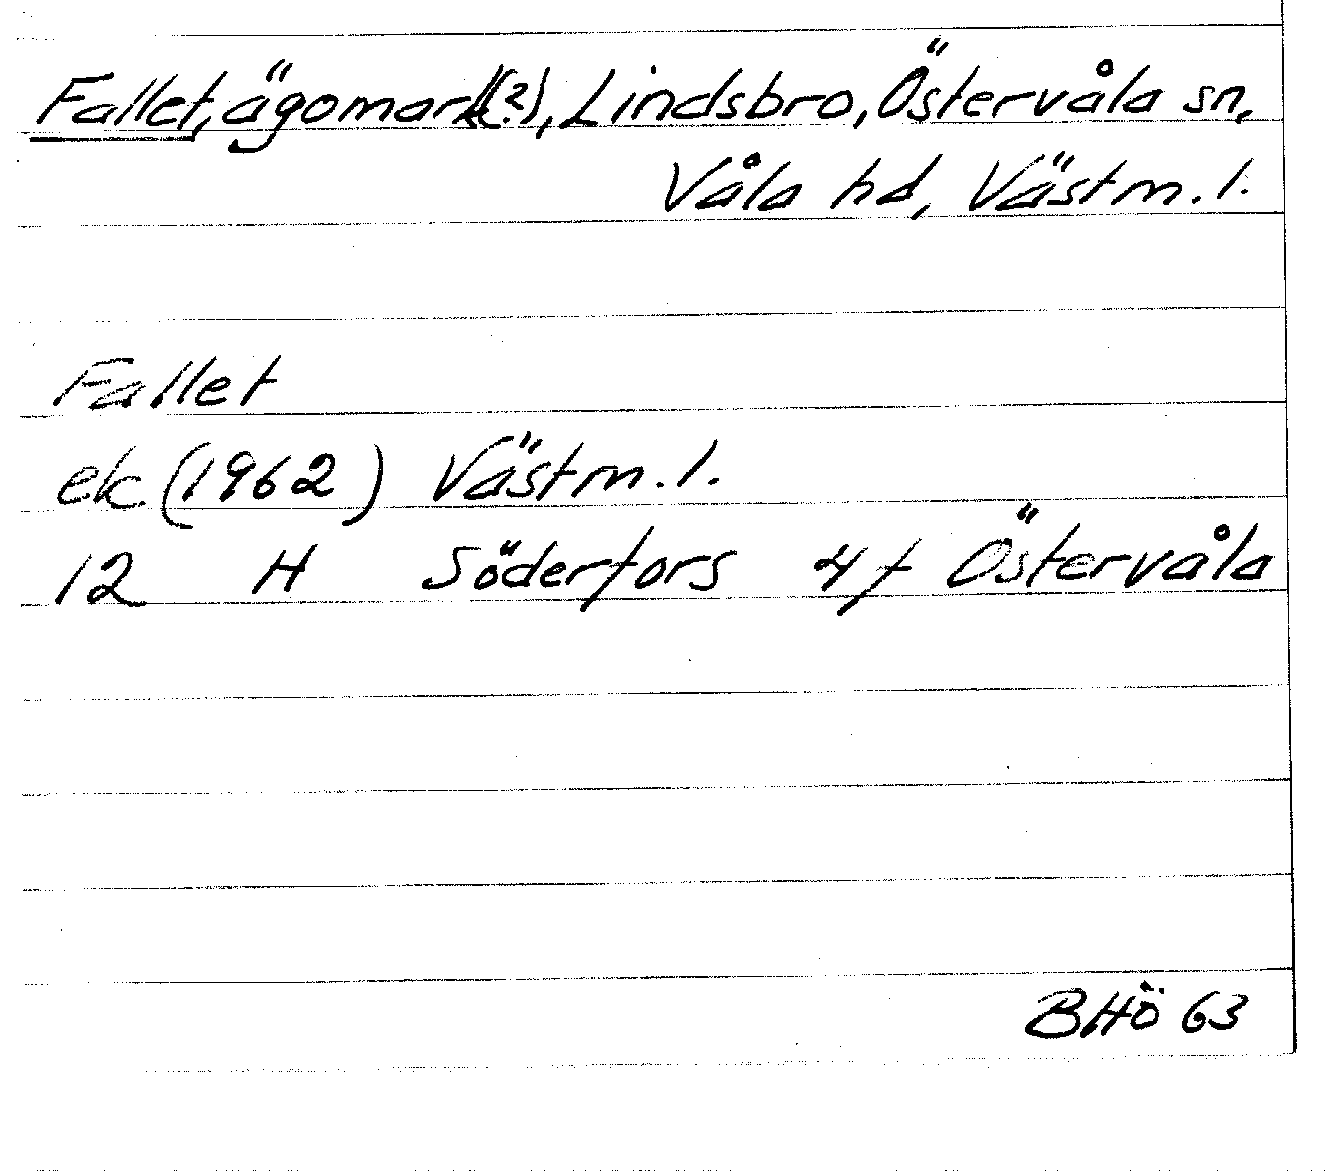 Fallet, ägomark(?), Lindsbro, Östervåla sn,
Våla hd, Västm. l.
Fallet
ek (1962) Västm. l.
12 H Söderfors 4f Östervåla
BHÖ 63